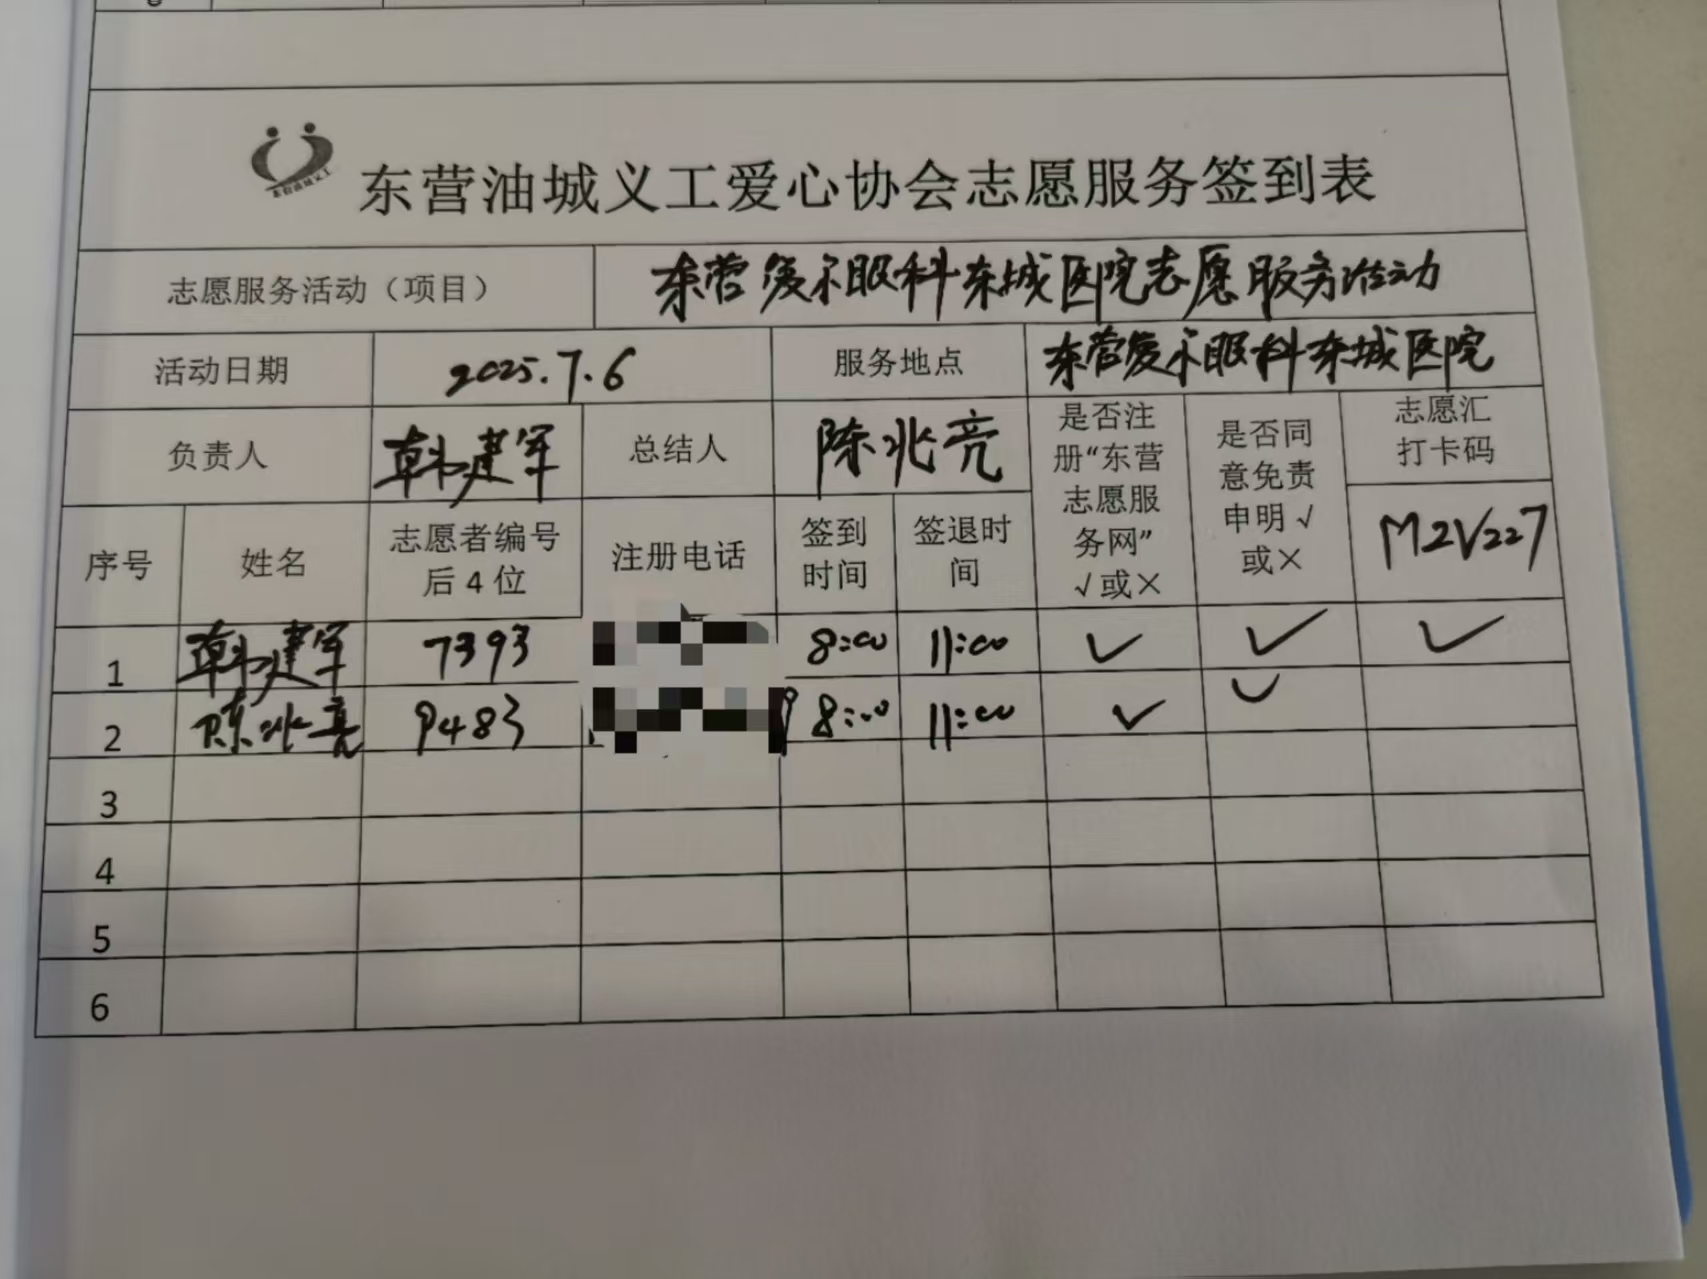 东营油城义工
东营油城义工爱心协会志愿服务签到表
志愿服务活动（项目） 东营爱尔眼科东城医院志愿服务活动
活动日期 2025.7.6 服务地点 东营爱尔眼科东城医院
负责人 韩建军 总结人 陈兆亮 是否注册“东营志愿服务网”√或× 是否同意免责申明√或× 志愿汇打卡码
序号 姓名 志愿者编号后4位 注册电话 签到时间 签退时间 M2V227
1 韩建军 7393 8:00 11:00 ✓ ✓ ✓
2 陈兆亮 9483 8:00 11:00 ✓ ✓
3
4
5
6